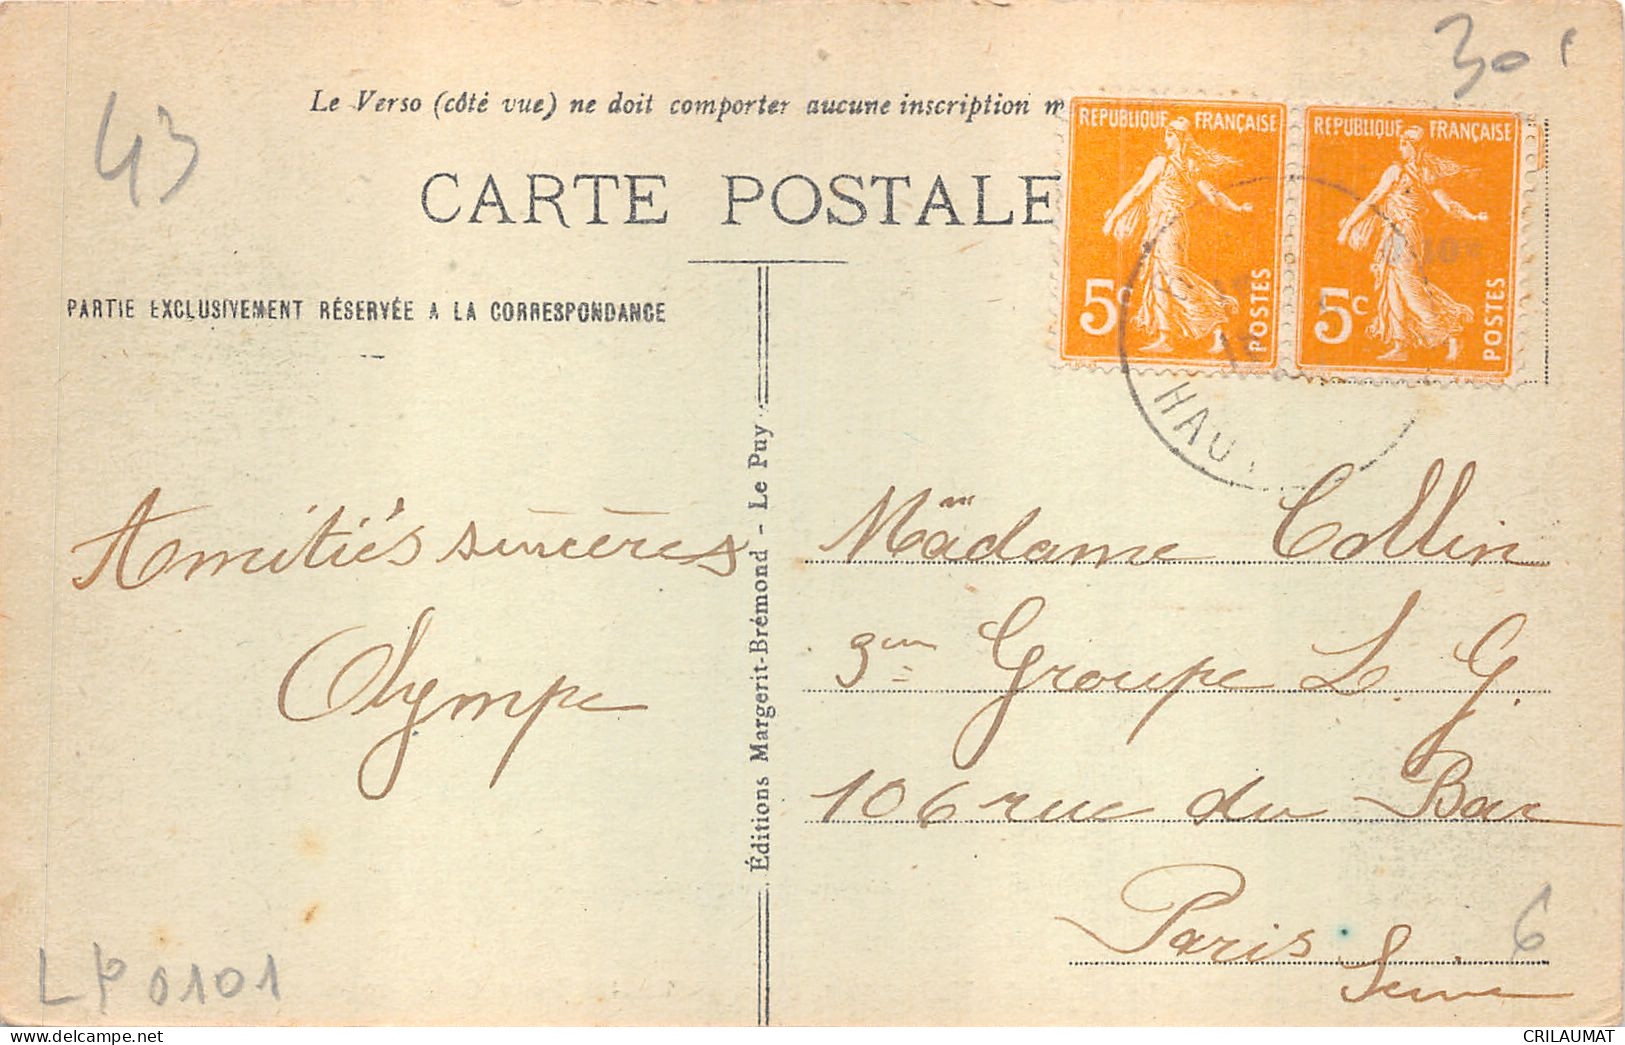 43
30 c
Le Verso (côté vue) ne doit comporter aucune inscription m
CARTE POSTALE
REPUBLIQUE FRANÇAISE
5c
POSTES
REPUBLIQUE FRANÇAISE
5c
POSTES
10c
HAU
PARTIE EXCLUSIVEMENT RÉSERVÉE A LA CORRESPONDANCE
Amitiés sincères
Olympe
Éditions Margerit-Brémond - Le Puy
Madame Collin
3em Groupe L. G.
106 rue du Bac
Paris
Seine
6
LP 0101
CRILAUMAT